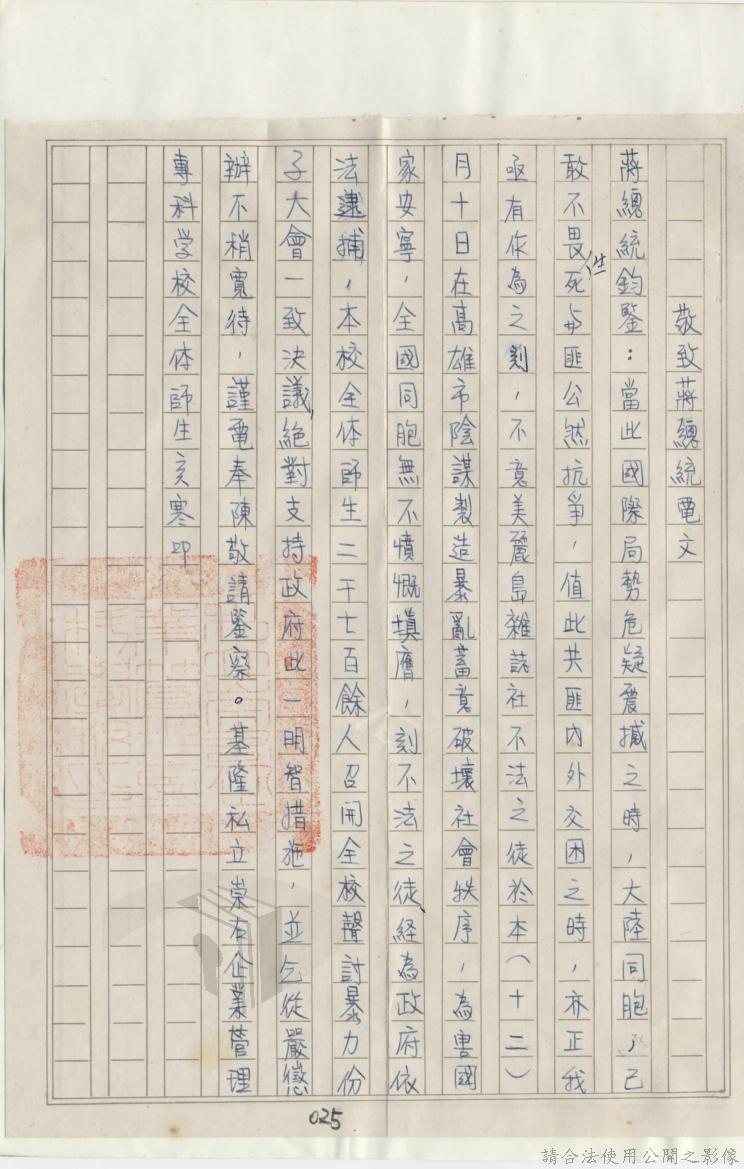 敬致蔣總統電文
蔣總統鈞鑒：當此國際局勢危疑震撼之時，大陸同胞，已
敢不畏犧死与匪公然抗爭，值此共匪內外交困之時，亦正我
亟有作為之刻，不意美麗島雜誌社不法之徒於本（十二）
月十日在高雄市陰謀製造暴亂蓄意破壞社會秩序，為害國
家安寧，全國同胞無不憤慨填膺，刻不法之徒、経為政府依
法逮捕，本校全体師生二千七百餘人召開全校聲討暴力份
子大會一致決議，絕對支持政府此一明智措施，並乞從嚴懲
辦不稍寬待，謹電奉陳敬請鑒察。基隆私立崇右企業管理
專科学校全体師生亥寒叩
025
請合法使用公開之影像